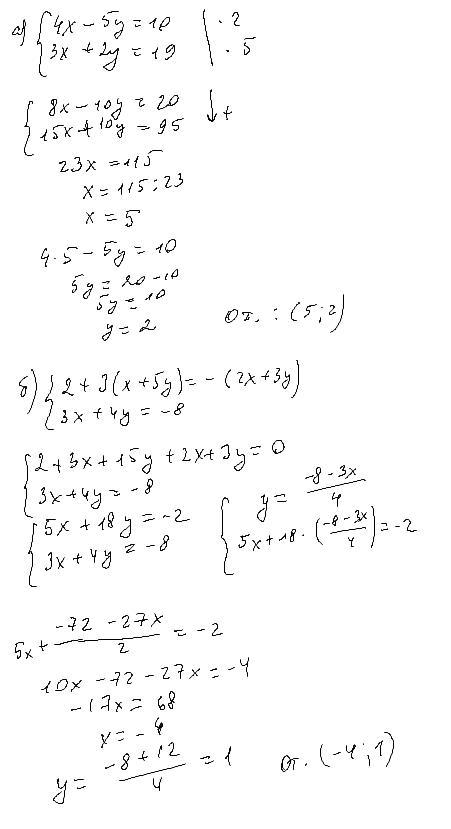 а) { 4x - 5y = 10 | · 2
3x + 2y = 19 | · 5
{ 8x - 10y = 20 ↓ +
15x + 10y = 95
23x = 115
x = 115 : 23
x = 5
4 · 5 - 5y = 10
5y = 20 - 10
5y = 10
y = 2
От. : (5 ; 2)
б) { 2 + 3(x + 5y) = - (2x + 3y)
3x + 4y = -8
{ 2 + 3x + 15y + 2x + 3y = 0
3x + 4y = -8
{ 5x + 18y = -2
3x + 4y = -8
{ y = (-8 - 3x)/4
5x + 18 · ((-8 - 3x)/4) = -2
5x + (-72 - 27x)/2 = -2
10x - 72 - 27x = -4
-17x = 68
x = -4
y = (-8 + 12)/4 = 1
От. (-4 ; 1)